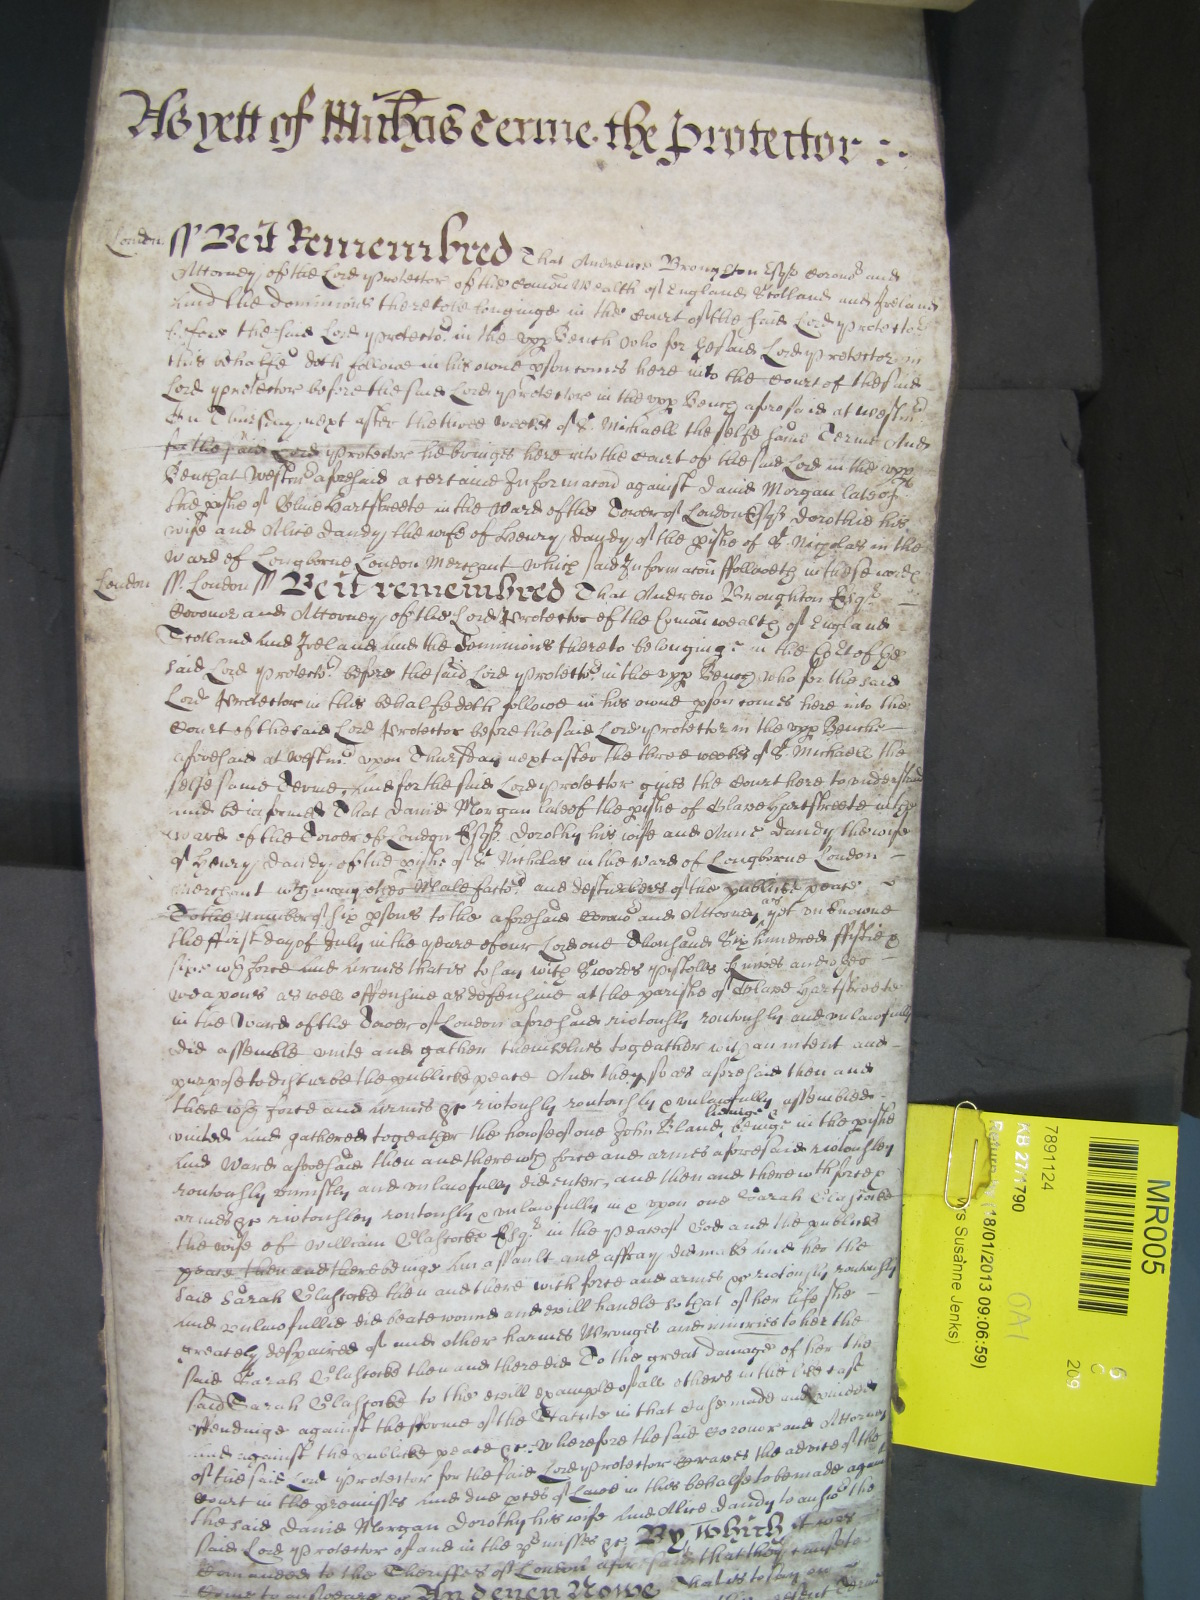 As yett of Michãs Terme. the Protector :·
London ss Be it Remembred That Andrewe Broughton Esqr Coronr and
Attorney of the Lord Protector of the Comon Wealth of England Scotland and Ireland
And the Dominions thereto belonginge in the Court of the said Lord Protector
before the said Lord Protector in the vpp Bench who for the said Lord Protector in
this behalfe doth followe in his owne pson comes here into the Court of the said
Lord Protector before the said Lord Protector in the vpp Bench aforesaid at Westmr
On Thursday next after the three weekes of St. Michaell the selfe same Terme And
for the said Lord Protector he bringes here into the Court of the said Lord in the vpp
Bench at Westmr aforesaid a certaine Informacon against David Morgan late of
the pishe of Olive Hartstreete in the Ward of the Tower of London Esqr Dorothie his
wife and Alice Dandy the wife of Henry Dandy of the pishe of St. Nicholas in the
Ward of Longborne London Merchant which said Informacon followeth in these words
London ss. London ss Be it remembred That Andrew Broughton Esqr
Coronor and Attorney of the Lord Protector of the Comon wealth of England
Scotland And Ireland And the Dominions thereto belonginge in the Court of the
said Lord Protector before the said Lord Protector in the vpp Bench who for the said
Lord Protector in this behalfe doth followe in his owne pson comes here into the
Court of the said Lord Protector before the said Lord Protector in the vpp Benche
aforesaid at Westmr vpon Thursday next after the three weekes of St. Michaell the
selfe same Terme And for the said Lord Protector gives the Court here to understand
and be informed That David Morgan late of the pishe of Olave Hartstreete in the
Ward of the Tower of London Esqr. Dorothy his wife and Dandy the wife
of Henry Dandy of the pishe of St Nicholas in the Ward of Longborne London
Merchant with many other Malefactors and desturbers of the publicke peace
To the number of six psons to the aforesaid Coronr and Attorney as yet vnknowne
the ffirst day of July in the yeare of our Lord one Thousand Six hundred ffiftie &
sixe with force And Armes that is to say with Swords pistolls knives and other
weapons as well offensive as defensive at the parishe of Olave Hartstreete
in the Ward of the Tower of London aforesaid riotously routously and vnlawfully
did assemble vnite and gather themselves togeather with an intent and
purpose to disturbe the publicke peace And they so as aforesaid then and
there with force and Armes &c riotously routously & vnlawfully assembled
vnited And gathered togeather the howse of one John Bland beinge in the pishe
And Ward aforesaid then and there with force and armes aforesaid riotously
routously vniustly and vnlawfully did enter, and then and there with force &
armes &c riotously routously & vnlawfully in & vpon one Sarah Clastocke
the wife of William Clastocke Esqr in the peace of God and the publicke
peace then and there beinge An assault and affray did make And her the
said Sarah Clastocke then and there with force and armes &c riotously routously
and vnlawfullie did beate wound and evill handle so that of her life she
greately despaired of and other harmes Wronges and iniuries to her the
said Sarah Clastocke then and there did To the great damage of her the
said Sarah Clastocke to the evill example of all others in the like case
offendinge against the fforme of the Statute in that case made and provided
And against the publicke peace &c. Wherefore the said Coronor and Attorney
of the said Lord Protector for the said Lord Protector craves the advice of the
Court in the premisses And due pces of Lawe in this behalfe to be made against
the said David Morgan Dorothy his wife And Alice Dandy to answr the
said Lord Protector of and in the pmisses &c By Which it was
Comanded to the Sheriffes of London aforesaid that they
Come to answeare &c And now Nowe That is to say on
MR005
7891124
KB 27/1790
(18/01/2013 09:06:59)
Susanne Jenks)
OA1
6
C
209